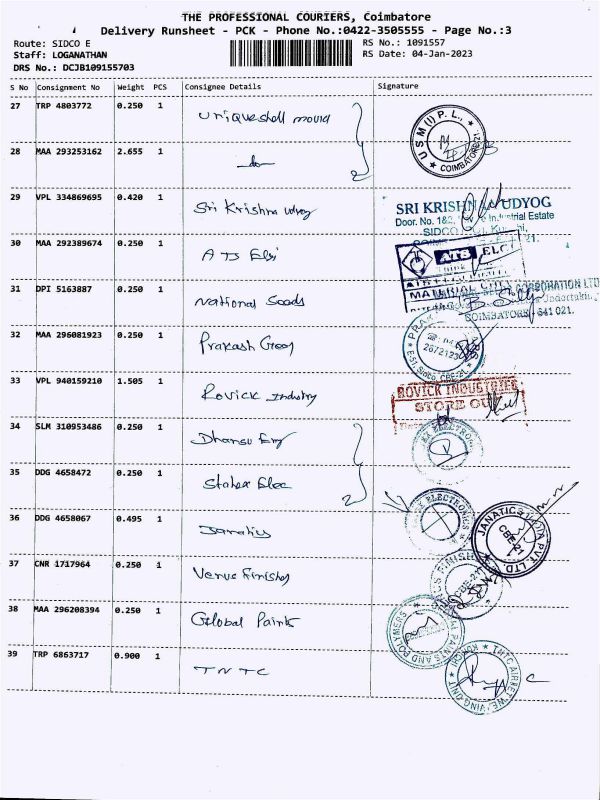 THE PROFESSIONAL COURIERS, Coimbatore
Delivery Runsheet - PCK - Phone No.:0422-3505555 - Page No.:3
Route: SIDCO E
RS No.: 1091557
Staff: LOGANATHAN
RS Date: 04-Jan-2023
DRS No.: DCJB109155703
S No Consignment No Weight PCS Consignee Details Signature
27 TRP 4803772 0.250 1 Uniqueshell mould
U S M (I) P. L., COIMBATORE-21
28 MAA 293253162 2.655 1 -do-
29 VPL 334869695 0.420 1 Sri Krishna udyog
SRI KRISHNA UDYOG
Door. No. 1&2, Industrial Estate
SIDCO
30 MAA 292389674 0.250 1 ATS Elsi
ATS ELCI
31 DPI 5163887 0.250 1 National Seeds
MATERIAL
CORPORATION LTD
Undertaking
COIMBATORE 641 021.
32 MAA 296081923 0.250 1 Prakash
E-51, Sidco, CBE-21
33 VPL 940159210 1.505 1 Rovick Industry
ROVICK INDUSTRIES
STORE OUT
34 SLM 310953486 0.250 1 Dhansu Eng
ELECTRONICS
35 DDG 4658472 0.250 1 Elec
36 DDG 4658067 0.495 1 Janatics
ELECTRONICS
JANATICS INDIA PVT. LTD.
CBE-21
37 CNR 1717964 0.250 1 Venus Finishes
FINISH
38 MAA 296208394 0.250 1 Global Paints
PAINTS AND POLYMERS
39 TRP 6863717 0.900 1 TNTC